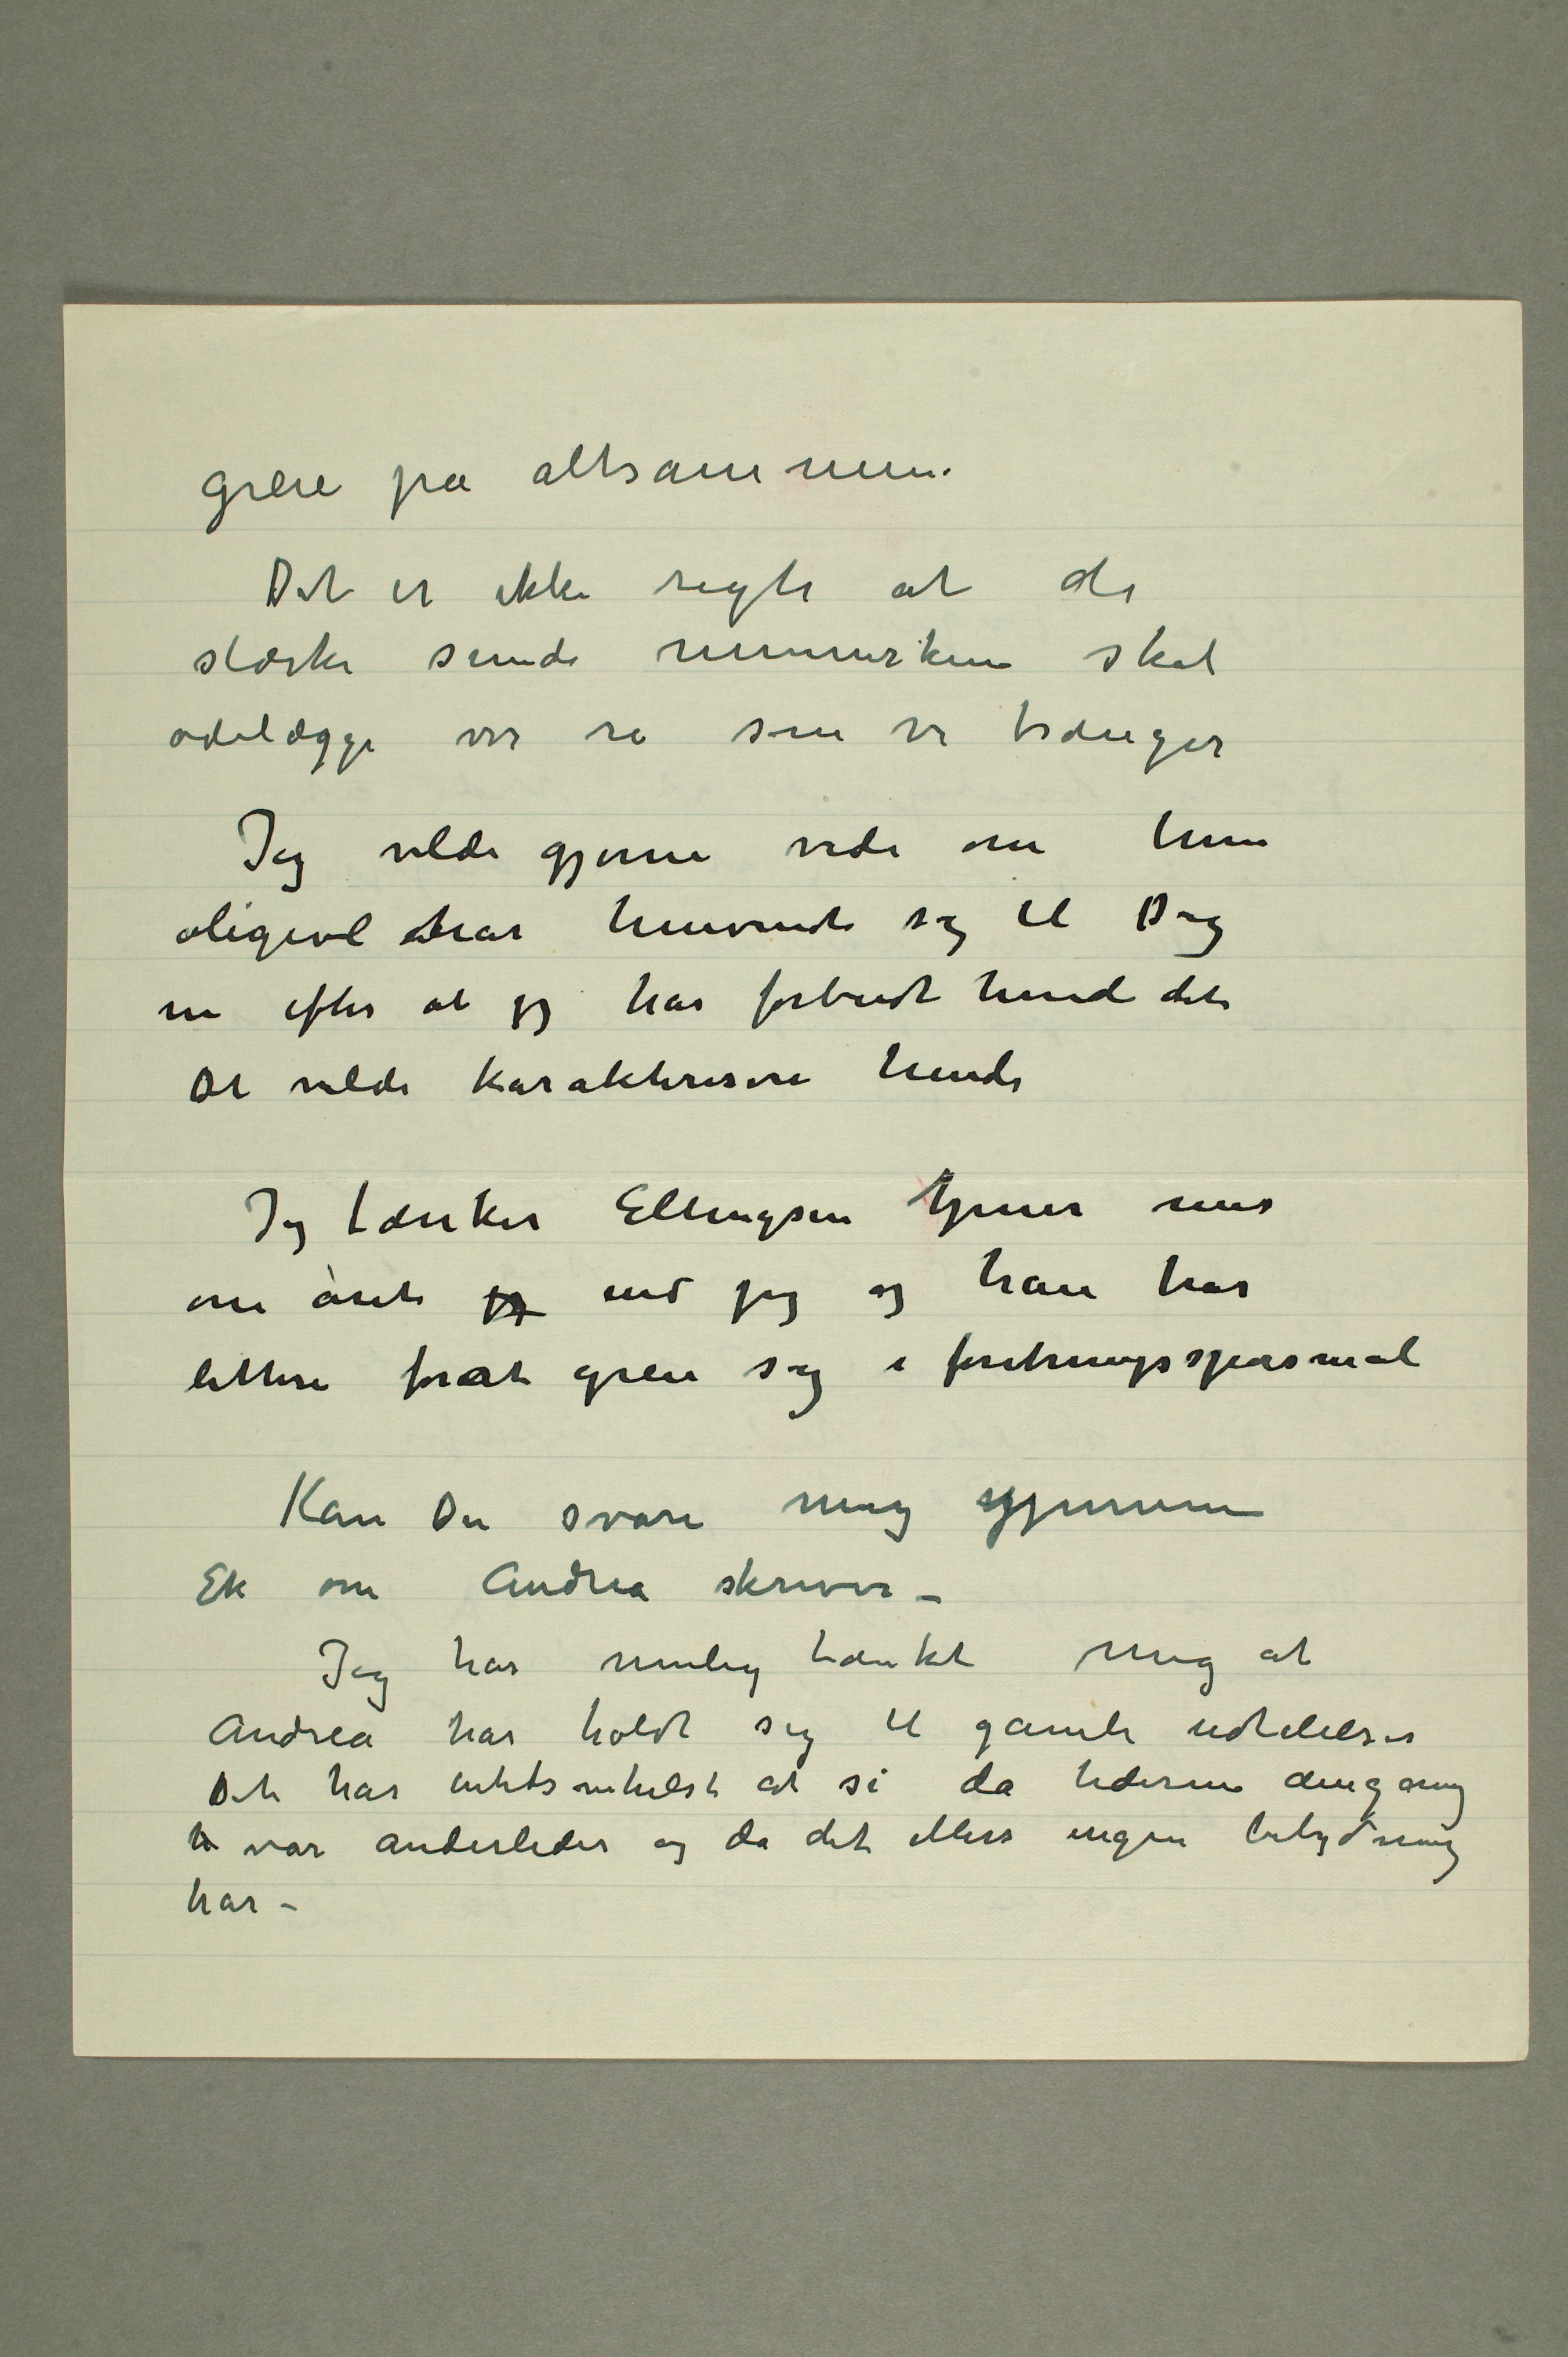 greie på altsammen.
Det er ikke rigti at de
stærke sunde mennesker skal
ødelægge vor ro som vi trænger
Jeg vilde gjerne vide om hun
aligevel har henvendt sig til Dig
nu efter at jeg har forbudt hende det
Det vilde karakterisere hende
Jeg tænker Ellingsen tjener mer
om året jeg end jeg og han har
lettere forat greie sig i foretningsspørsmål
Kan Du svare mig gjennem
Ek om Andrea skriver –
Jeg har nemlig tænkt mig at
Andrea har holdt sig til gamle udtalelser
Det har intetsomhelst at si da tiderne dengang
var anderledes og da det ellers ingen betydning
har –